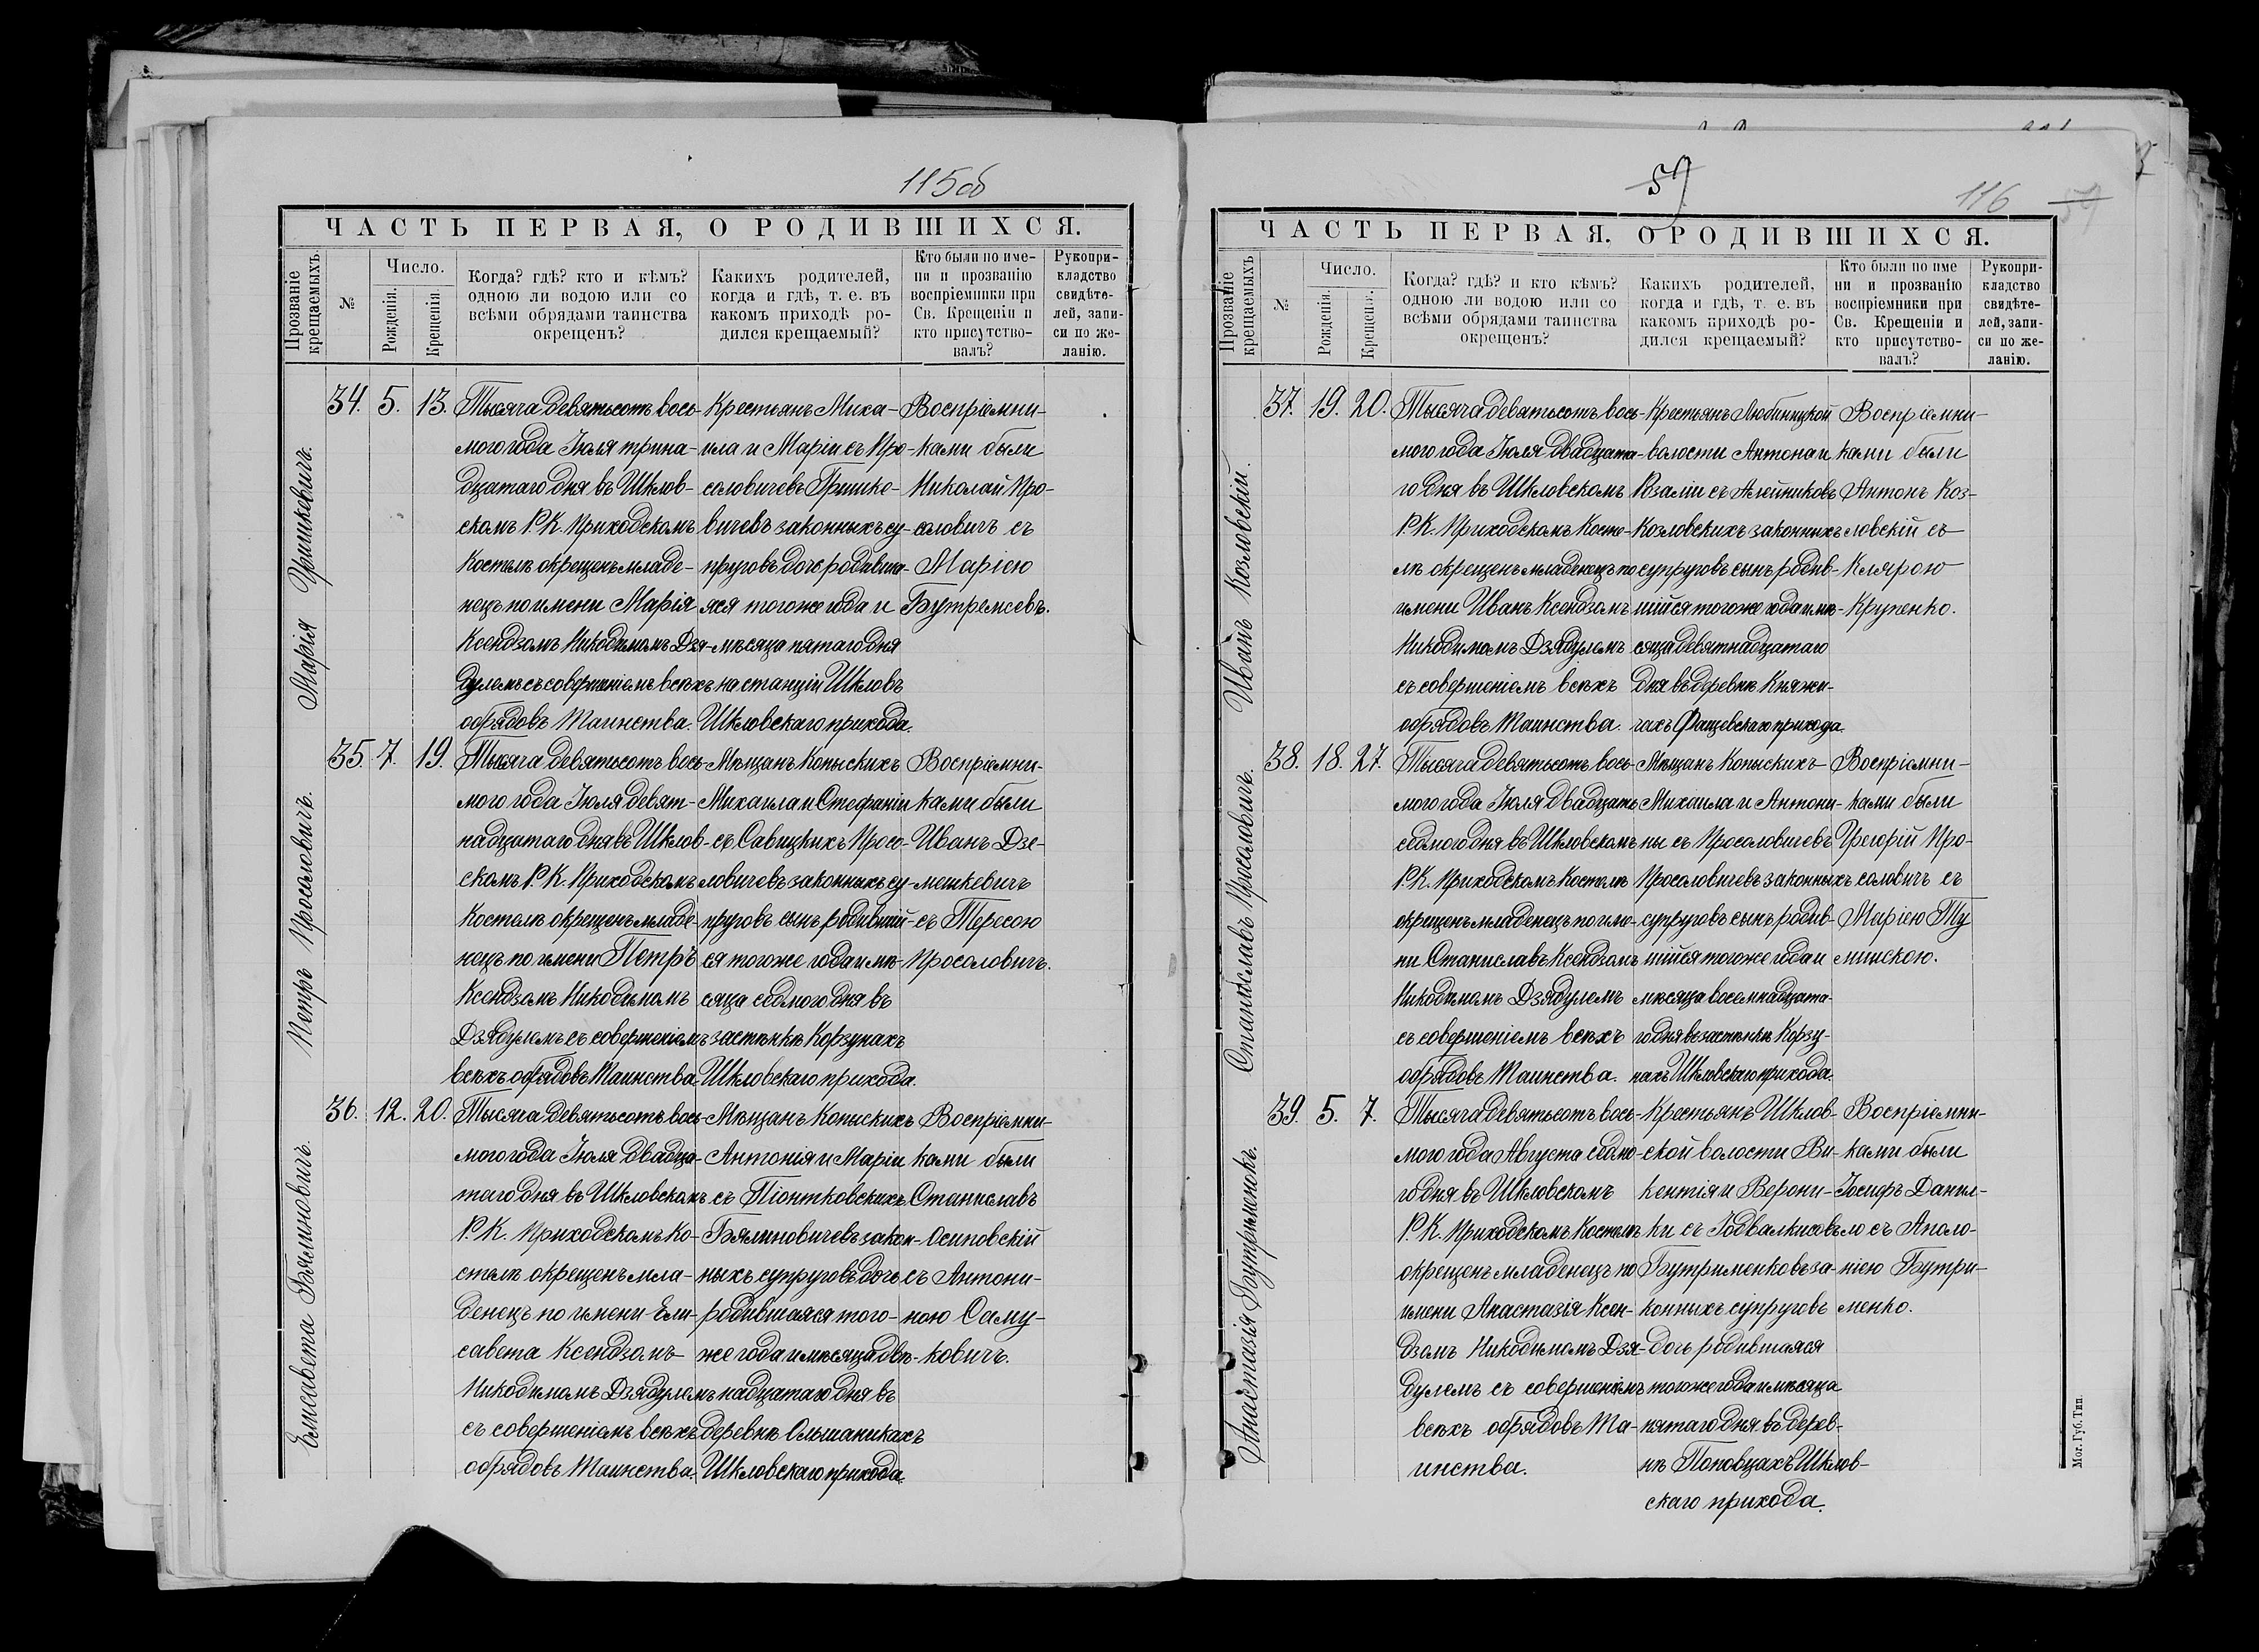 115об
ЧАСТЬ ПЕРВАЯ, О РОДИВШИХСЯ.
Прозваніе крещаемыхъ.
№
Число.
Рожденія.
Крещенія.
Когда? гдѣ? кто и кѣмъ?
одною ли водою или со
всѣми обрядами таинства
окрещенъ?
Какихъ родителей,
когда и гдѣ, т. е. въ
какомъ приходѣ ро-
дился крещаемый?
Кто были по име-
ни и прозванію
воспріемники при
Св. Крещеніи и
кто присутство-
валъ?
Рукопри-
кладство
свидѣте-
лей, запи-
си по же-
ланію.
Марія
34. 5. 13.
Тысяча девятьсотъ вось-
мого года Іюля трина-
дцатаго дня въ Шклов-
скомъ Р. К. Приходскомъ
Костелѣ окрещенъ младе-
нецъ по имени Марія
Ксендзомъ Никодимомъ Дзя-
дулемъ съ совершеніемъ всѣхъ
обрядовъ Таинства.
Крестьянъ Миха-
ила и Маріи съ Про-
соловичевъ Гришке-
вичевъ законныхъ су-
пруговъ дочь родивша-
яся того же года и
мѣсяца пятаго дня
на станціи Шкловъ
Шкловскаго прихода.
Воспріемни-
ками были
Николай Про-
соловичъ съ
Маріею
Петръ Просоловичъ.
35. 7. 19.
Тысяча девятьсотъ вось-
мого года Іюля девят-
надцатаго дня въ Шклов-
скомъ Р. К. Приходскомъ
Костелѣ окрещенъ младе-
нецъ по имени Петръ
Ксендзомъ Никодимомъ
Дзядулемъ съ совершеніемъ
всѣхъ обрядовъ Таинства.
Мѣщанъ Копыскихъ
Михаила и Стефаніи
съ Савицкихъ Просо-
ловичевъ законныхъ су-
пруговъ сынъ родившій-
ся того же года и мѣ-
сяца седмого дня въ
застѣнкѣ Корзунахъ
Шкловскаго прихода.
Воспріемни-
ками были
Иванъ Дзе-
мешкевичъ
съ Тересою
Просоловичъ.
Елисавета Бялиновичъ.
36. 12. 20.
Тысяча девятьсотъ вось-
мого года Іюля двадца-
таго дня въ Шкловскомъ
Р. К. Приходскомъ Ко-
стелѣ окрещенъ мла-
денецъ по имени Ели-
савета Ксендзомъ
Никодимомъ Дзядулемъ
съ совершеніемъ всѣхъ
обрядовъ Таинства.
Мѣщанъ Копыскихъ
Антонія и Маріи
съ Піонтковскихъ
Бялиновичевъ закон-
ныхъ супруговъ дочь
родившаяся того-
же года и мѣсяца двѣ-
надцатаго дня въ
деревнѣ Ольшаникахъ
Шкловскаго прихода.
Воспріемни-
ками были
Станиславъ
Осиповскій
съ Антони-
ною Саму-
ковичъ.
59
116
ЧАСТЬ ПЕРВАЯ, О РОДИВШИХСЯ.
Прозваніе крещаемыхъ
№
Число.
Рожденія.
Крещенія.
Когда? гдѣ? и кто кѣмъ?
одною ли водою или со
всѣми обрядами таинства
окрещенъ?
Какихъ родителей,
когда и гдѣ, т. е. въ
какомъ приходѣ ро-
дился крещаемый?
Кто были по име
ни и прозванію
воспріемники при
Св. Крещеніи и
кто присутство-
валъ?
Рукопри-
кладство
свидѣте-
лей, запи-
си по же-
ланію.
Иванъ Козловскій.
37. 19. 20.
Тысяча девятьсотъ вось-
мого года Іюля двадцата-
го дня въ Шкловскомъ
Р. К. Приходскомъ Косте-
лѣ окрещенъ младенецъ по
имени Иванъ Ксендзомъ
Никодимомъ Дзядулемъ
съ совершеніемъ всѣхъ
обрядовъ Таинства.
Крестьянъ Любиницкой
волости Антона и
Розаліи съ Алейниковъ
Козловскихъ законныхъ
супруговъ сынъ родив-
шійся того же года и мѣ-
сяца девятнадцатаго
дня въ деревнѣ Княжи-
цахъ Фащевскаго прихода.
Воспріемни-
ками были
Антонъ Коз-
ловскій съ
Клярою
Крупенко.
Станиславъ Просоловичъ.
38. 18. 27.
Тысяча девятьсотъ вось-
мого года Іюля двадцать
седмого дня въ Шкловскомъ
Р. К. Приходскомъ Костелѣ
окрещенъ младенецъ по име-
ни Станиславъ Ксендзомъ
Никодимомъ Дзядулемъ
съ совершеніемъ всѣхъ
обрядовъ Таинства.
Мѣщанъ Копыскихъ
Михаила и Антони-
ны съ Просоловичевъ
Просоловичевъ законныхъ
супруговъ сынъ родив-
шійся того же года и
мѣсяца восемнадцата-
го дня въ застѣнкѣ Корзу-
нахъ Шкловскаго прихода.
Воспріемни-
ками были
Григорій Про-
соловичъ съ
Маріею Ту
минскою.
Анастазія Бутрименокъ.
39. 5. 7.
Тысяча девятьсотъ вось-
мого года Августа седмо-
го дня въ Шкловскомъ
Р. К. Приходскомъ Костелѣ
окрещенъ младенецъ по
имени Анастазія Ксен-
дзомъ Никодимомъ Дзя-
дулемъ съ совершеніемъ
всѣхъ обрядовъ Та-
инства.
Крестьянъ Шклов-
ской волости Ви-
кентія и Верони-
ки съ Годвалкисовъ
Бутрименковъ за-
конныхъ супруговъ
дочь родившаяся
того же года и мѣсяца
пятаго дня въ дерев-
нѣ Поповцахъ Шклов-
скаго прихода.
Воспріемни-
ками были
Іосифъ Данил-
ло съ Аполо-
ніею Бутри-
менко.
Мог. Губ. Тип.